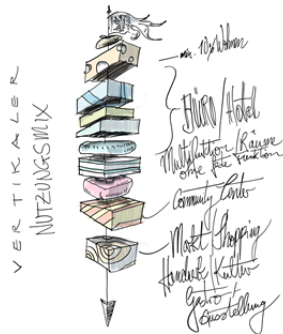 VERTIKALER
NUTZUNGSMIX
min. 10% Wohnen
BÜRO/Hotel
Multifunktion/Räume
ohne fixe Funktion
Community Center
Markt/Shopping
Handwerk/Kultur
Gastro +
Ausstellung